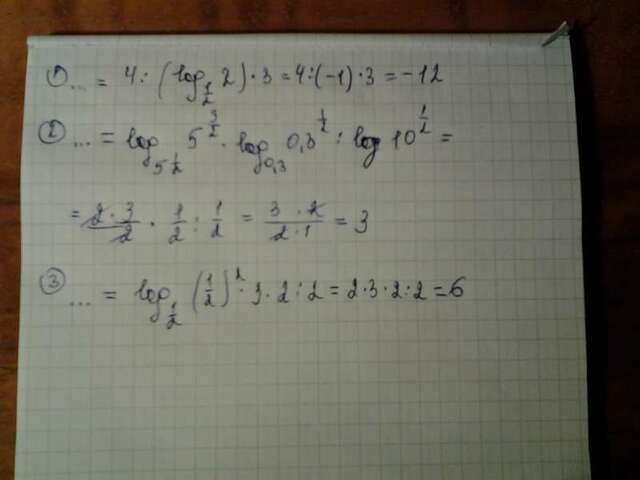 ① ... = 4 : (log_{1/2} 2) · 3 = 4 : (-1) · 3 = -12
② ... = log_{5^{1/2}} 5^{3/2} · log_{0,3} 0,3^{1/2} : log 10^{1/2} =
= 2·3/2 · 1/2 : 1/2 = 3·2/2·1 = 3
③ ... = log_{1/2} (1/2)^2 · 3 · 2 : 2 = 2·3·2:2 = 6